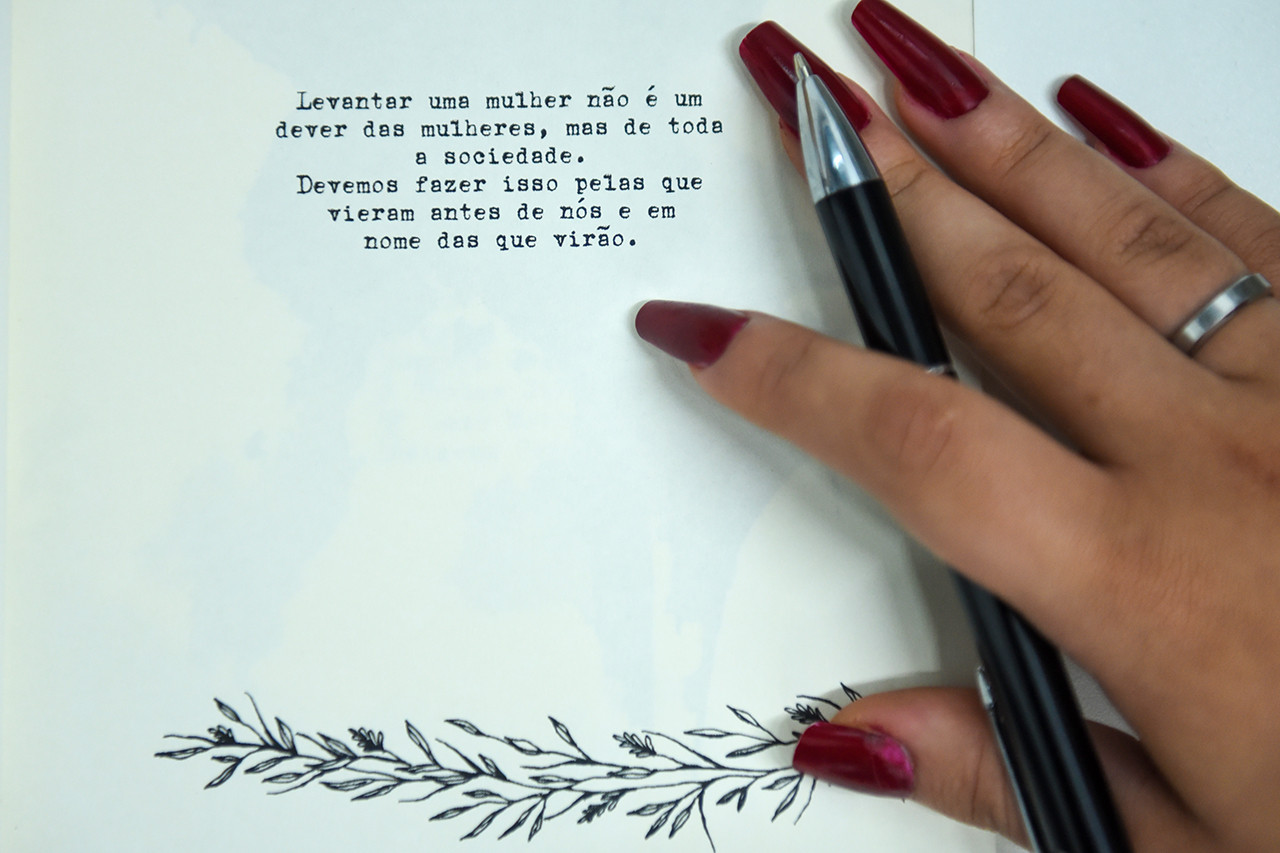 Levantar uma mulher não é um
dever das mulheres, mas de toda
a sociedade.
Devemos fazer isso pelas que
vieram antes de nós e em
nome das que virão.